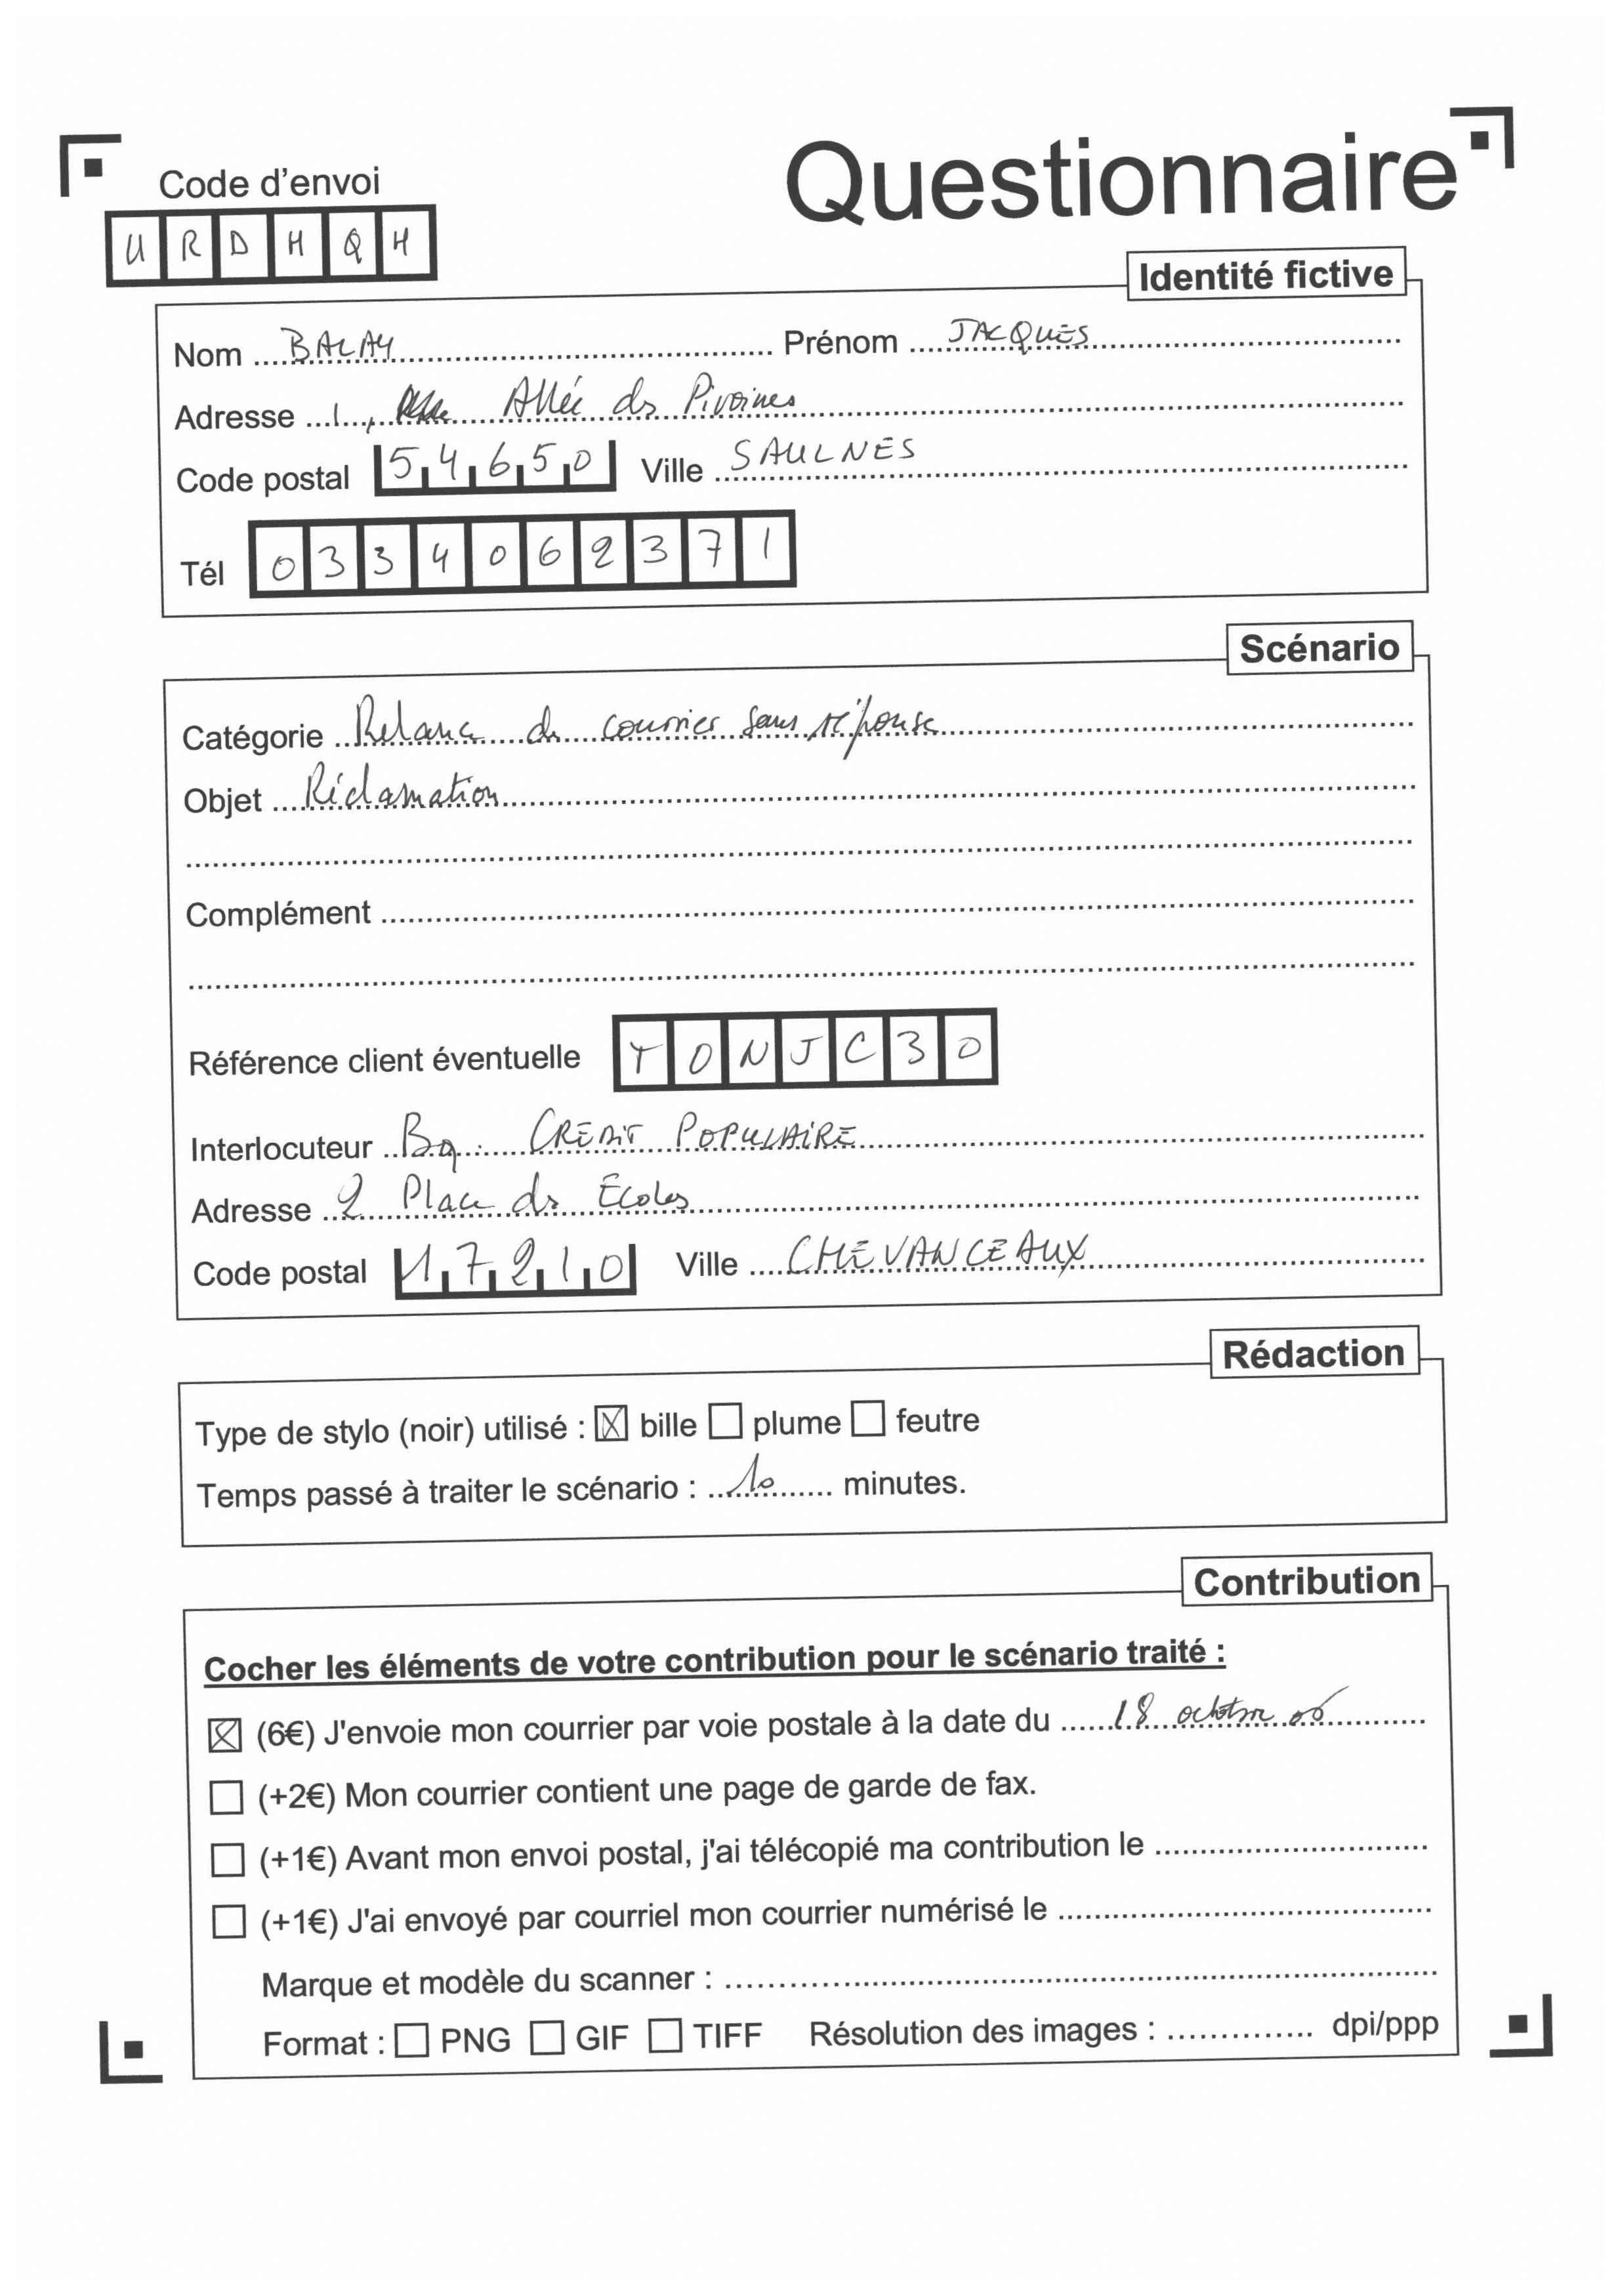 Questionnaire
Code d'envoi
U R D H Q H
Identité fictive
Nom BALAY Prénom JACQUES
Adresse 1, Allée des Pivoines
Code postal 54650 Ville SAULNES
Tél 0334062371
Scénario
Catégorie Relance de courrier sans réponse
Objet Réclamation
Complément
Référence client éventuelle TONJC30
Interlocuteur Bq. CREDIT POPULAIRE
Adresse 2 Place des Ecoles
Code postal 17210 Ville CHEVANCEAUX
Rédaction
Type de stylo (noir) utilisé : ☒ bille ☐ plume ☐ feutre
Temps passé à traiter le scénario : 10 minutes.
Contribution
Cocher les éléments de votre contribution pour le scénario traité :
☒ (6€) J'envoie mon courrier par voie postale à la date du 18 octobre 06
☐ (+2€) Mon courrier contient une page de garde de fax.
☐ (+1€) Avant mon envoi postal, j'ai télécopié ma contribution le
☐ (+1€) J'ai envoyé par courriel mon courrier numérisé le
Marque et modèle du scanner :
Format : ☐ PNG ☐ GIF ☐ TIFF Résolution des images : dpi/ppp